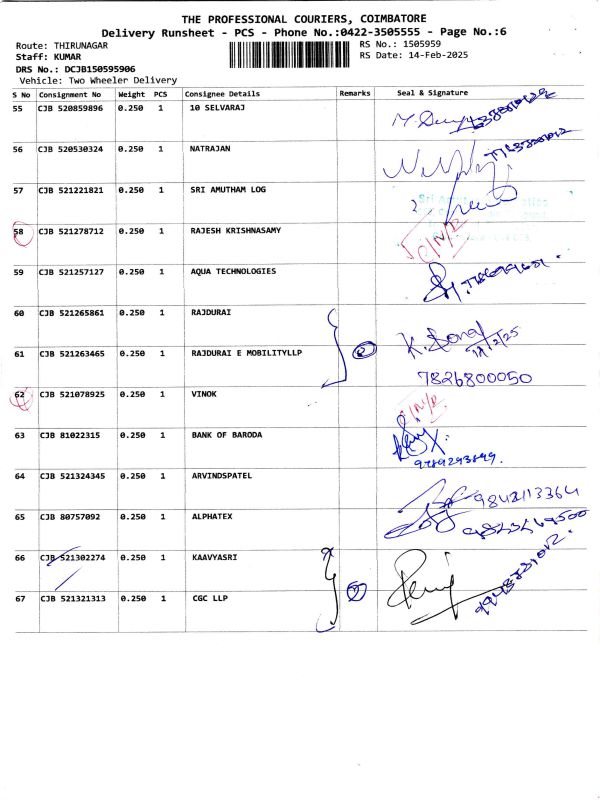 THE PROFESSIONAL COURIERS, COIMBATORE
Delivery Runsheet - PCS - Phone No.:0422-3505555 - Page No.:6
Route: THIRUNAGAR RS No.: 1505959
Staff: KUMAR RS Date: 14-Feb-2025
DRS No.: DCJB150595906
Vehicle: Two Wheeler Delivery
S No Consignment No Weight PCS Consignee Details Remarks Seal & Signature
55 CJB 520859896 0.250 1 10 SELVARAJ
56 CJB 520530324 0.250 1 NATRAJAN
57 CJB 521221821 0.250 1 SRI AMUTHAM LOG
58 CJB 521278712 0.250 1 RAJESH KRISHNASAMY
59 CJB 521257127 0.250 1 AQUA TECHNOLOGIES
60 CJB 521265861 0.250 1 RAJDURAI
61 CJB 521263465 0.250 1 RAJDURAI E MOBILITYLLP 2
7826800050
62 CJB 521078925 0.250 1 VINOK
63 CJB 81022315 0.250 1 BANK OF BARODA
9789293899
64 CJB 521324345 0.250 1 ARVINDSPATEL 9842113364
65 CJB 80757092 0.250 1 ALPHATEX
66 CJB 521302274 0.250 1 KAAVYASRI
67 CJB 521321313 0.250 1 CGC LLP